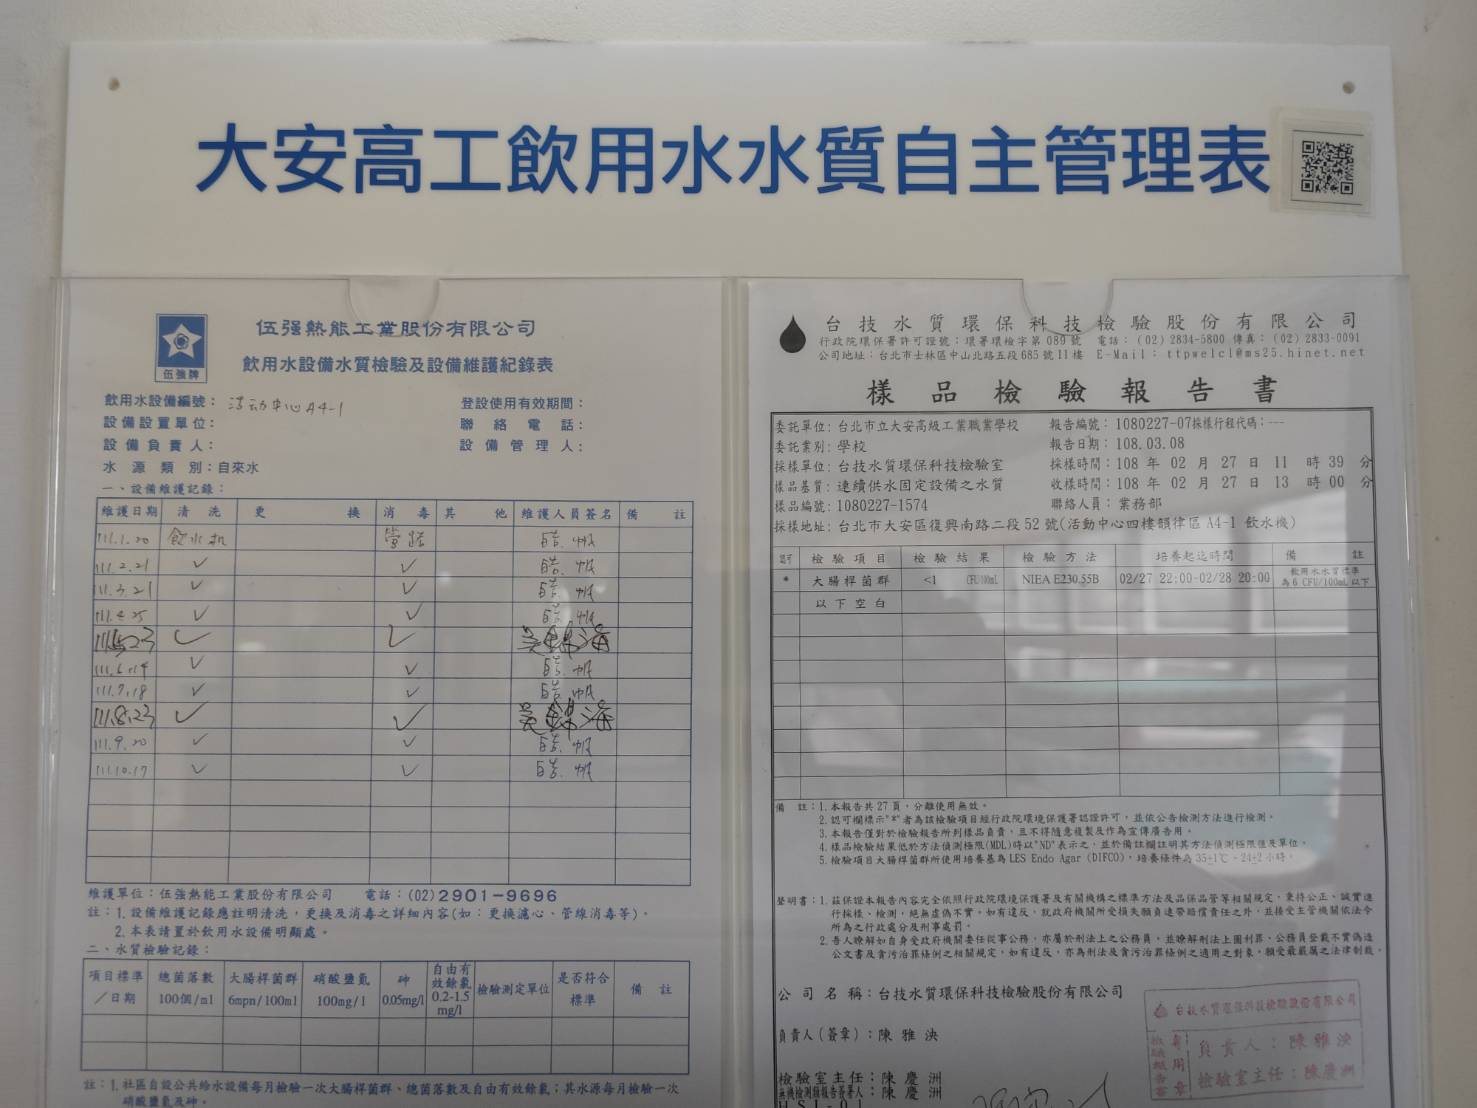 大安高工飲用水水質自主管理表
伍強牌
伍强熱能工業股份有限公司
飲用水設備水質檢驗及設備維護紀錄表
飲用水設備編號：活动中心A4-1
登設使用有效期間：
設備設置單位：
聯絡電話：
設備負責人：
設備管理人：
水源類別：自來水
一、設備維護記錄：
維護日期 清洗 更換 消毒 其他 維護人員簽名 備註
111.1.20 飲水机 管路
111.2.21 ✓ ✓
111.3.21 ✓ ✓
111.4.25 ✓ ✓
111.5.23 ✓ ✓
111.6.14 ✓ ✓
111.7.18 ✓ ✓
111.8.23 ✓ ✓
111.9.20 ✓ ✓
111.10.17 ✓ ✓
維護單位：伍強熱能工業股份有限公司 電話：(02)2901-9696
註：1.設備維護記錄應註明清洗，更換及消毒之詳細內容(如：更換濾心、管線消毒等)。
2.本表請置於飲用水設備明顯處。
二、水質檢驗記錄：
項目標準／日期 總菌落數100個/ml 大腸桿菌群6mpn/100ml 硝酸鹽氮100mg/l 砷0.05mg/l 自由有效餘氯0.2-1.5mg/l 檢驗測定單位 是否符合標準 備註
註：1.社區自設公共給水設備每月檢驗一次大腸桿菌群、總菌落數及自由有效餘氯；其水源每月檢驗一次
硝酸鹽氮及砷。
台技水質環保科技檢驗股份有限公司
行政院環保署許可證號：環署環檢字第089號 電話：(02)2834-5800 傳真：(02)2833-0091
公司地址：台北市士林區中山北路五段685號11樓 E-Mail：ttpwelcl@ms25.hinet.net
樣品檢驗報告書
委託單位：台北市立大安高級工業職業學校 報告編號：1080227-07採樣行程代碼：---
委託業別：學校 報告日期：108.03.08
採樣單位：台技水質環保科技檢驗室 採樣時間：108年02月27日11時39分
樣品基質：連續供水固定設備之水質 收樣時間：108年02月27日13時00分
樣品編號：1080227-1574 聯絡人員：業務部
採樣地址：台北市大安區復興南路二段52號(活動中心四樓韻律區A4-1 飲水機)
認可 檢驗項目 檢驗結果 檢驗方法 培養起迄時間 備註
* 大腸桿菌群 <1 CFU/100mL NIEA E230.55B 02/27 22:00-02/28 20:00 飲用水水質標準為6 CFU/100mL以下
以下空白
備註：1.本報告共27頁，分離使用無效。
2.認可欄標示"*"者為該檢驗項目經行政院環境保護署認證許可，並依公告檢測方法進行檢測。
3.本報告僅對於檢驗報告所列樣品負責，且不得隨意複製及作為宣傳廣告用。
4.樣品檢驗結果低於方法偵測極限(MDL)時以"ND"表示之，並於備註欄註明其方法偵測極限值及單位。
5.檢驗項目大腸桿菌群所使用培養基為LES Endo Agar (DIFCO)，培養條件為35±1℃、24±2小時。
聲明書：1.茲保證本報告內容完全依照行政院環境保護署及有關機構之標準方法及品保品管等相關規定，秉持公正、誠實進
行採樣、檢測，絕無虛偽不實。如有違反，就政府機關所受損失願負連帶賠償責任之外，並接受主管機關依法令
所為之行政處分及刑事處罰。
2.吾人瞭解如自身受政府機關委任從事公務，亦屬於刑法上之公務員，並瞭解刑法上圖利罪、公務員登載不實偽造
公文書及貪污治罪條例之相關規定，如有違反，亦為刑法及貪污治罪條例之適用之對象，願受最嚴厲之法律制裁。
公司名稱：台技水質環保科技檢驗股份有限公司
負責人(簽章)：陳雅泱
檢驗室主任：陳慶洲
無機檢測類報告簽署人：陳慶洲
台技水質環保科技檢驗股份有限公司
檢驗報告專用章
負責人：陳雅泱
檢驗室主任：陳慶洲